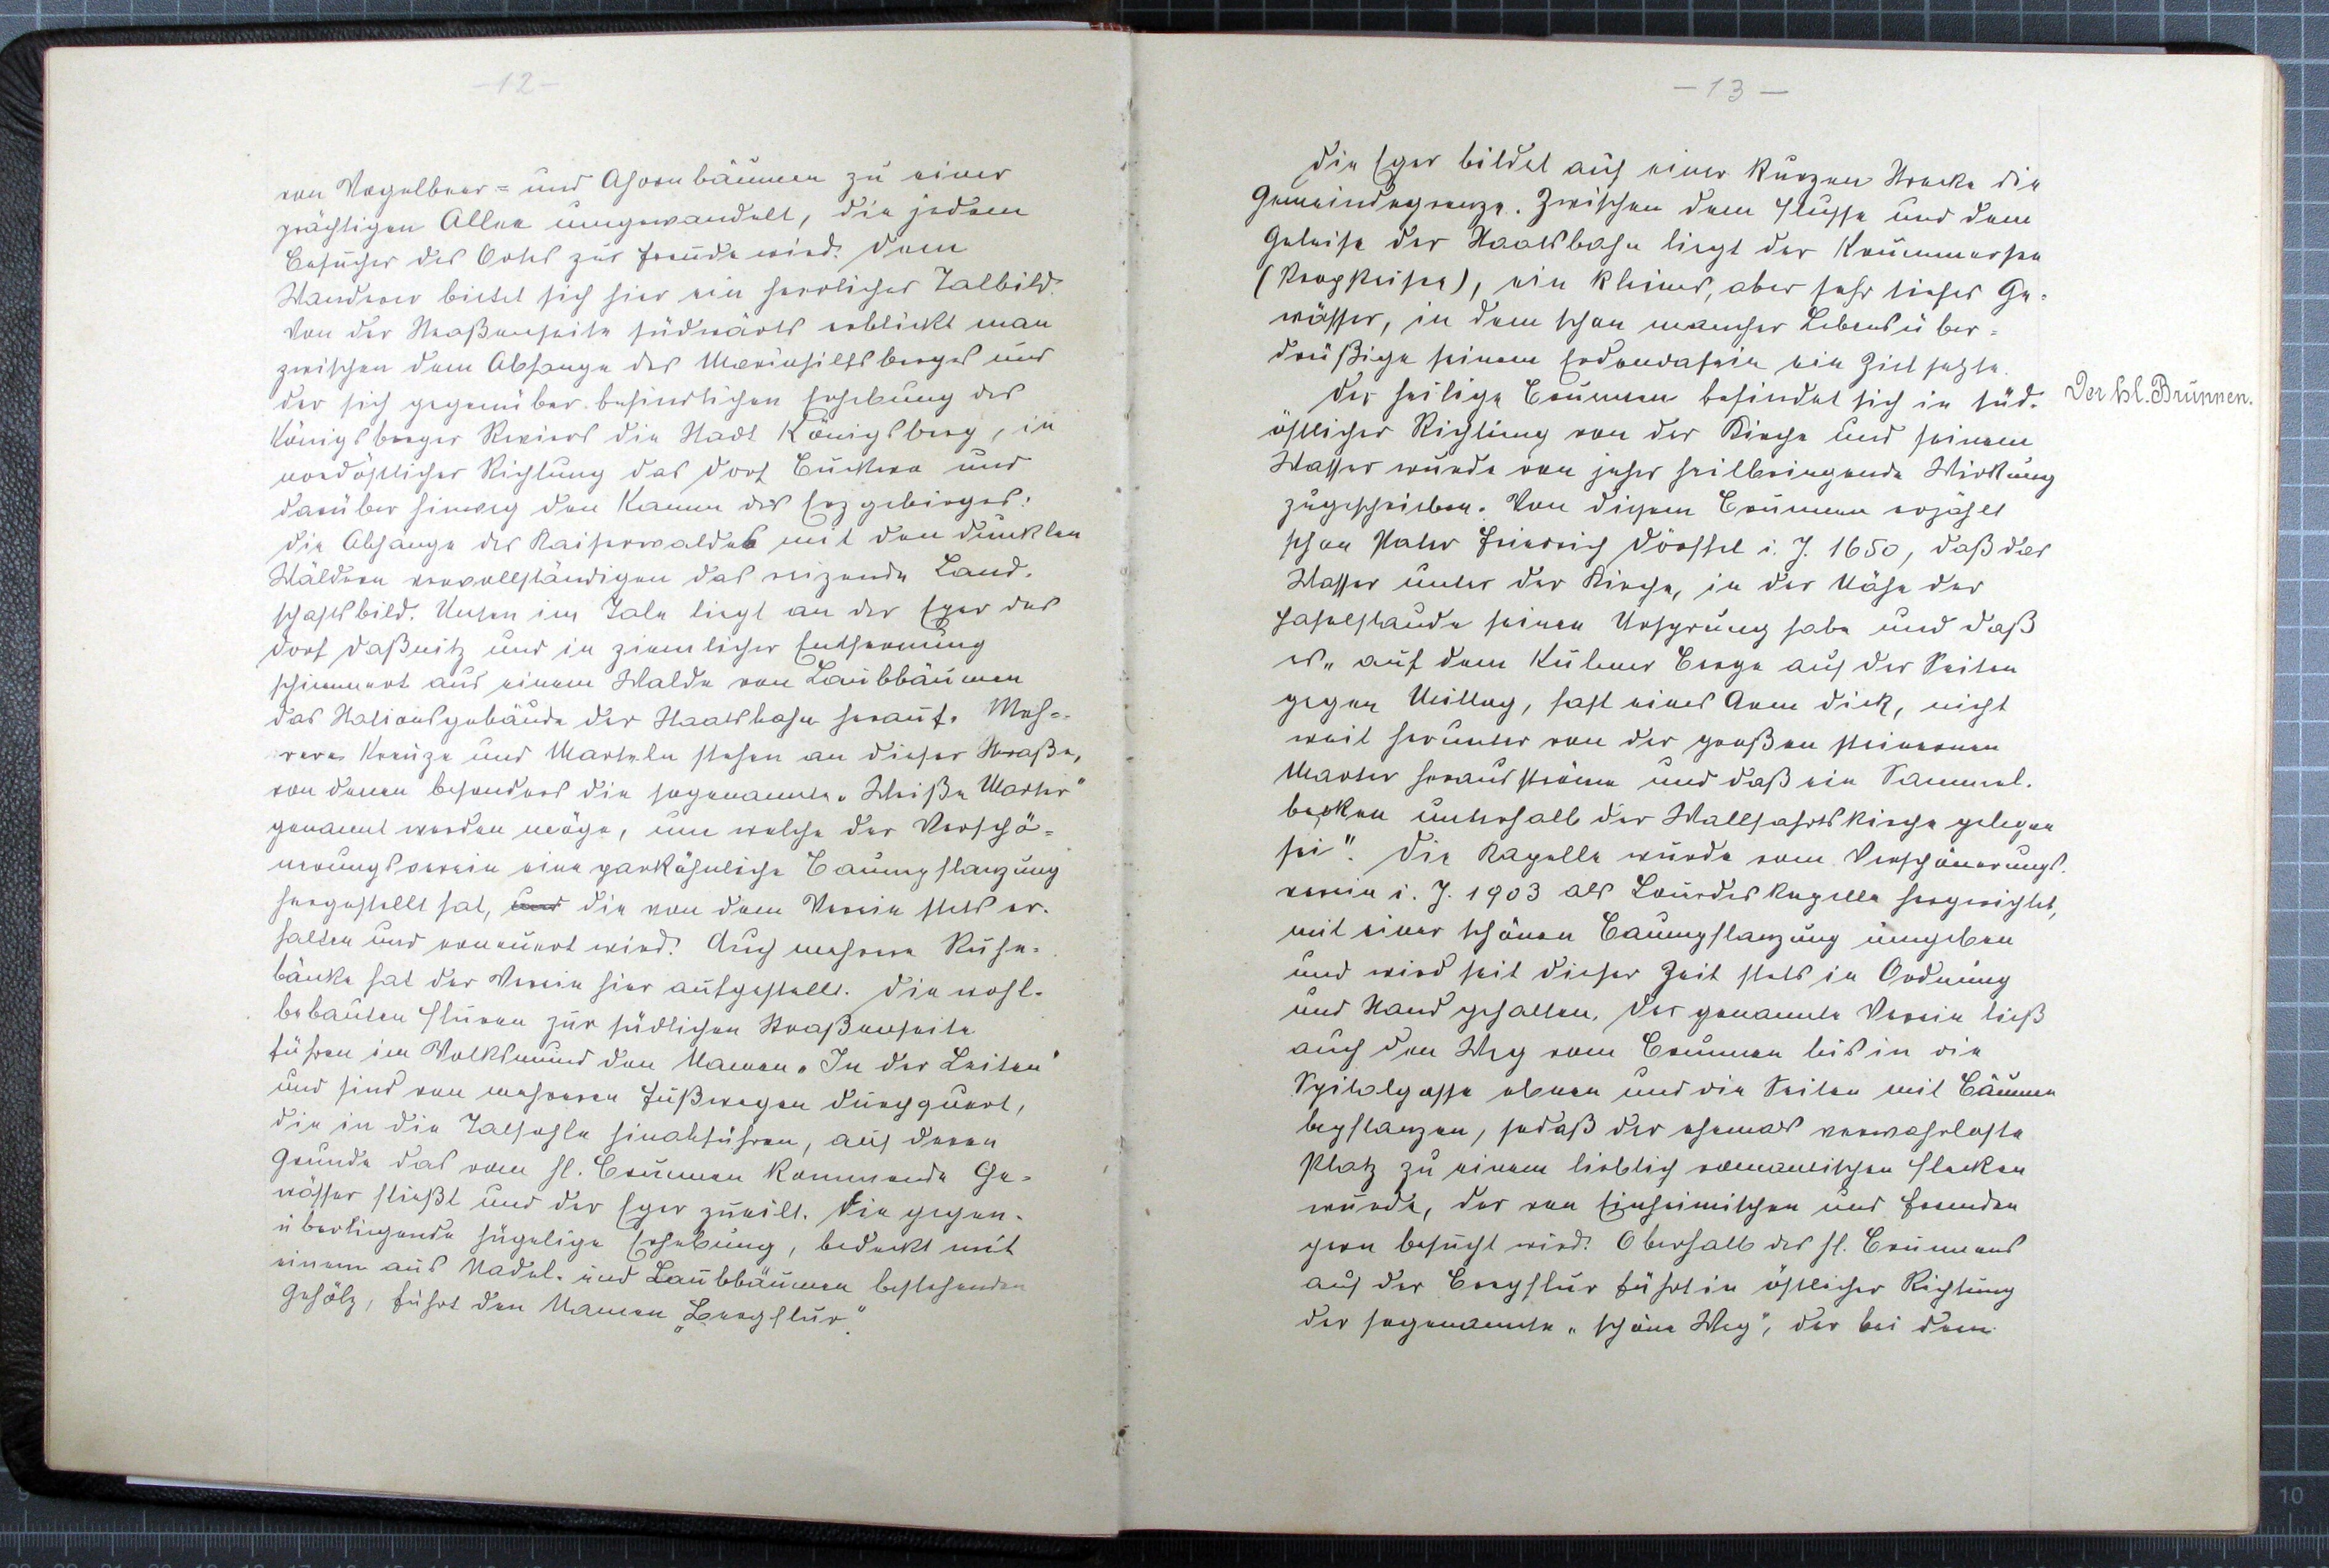 -12-
von Vogelbeer= und Ahornbäumen zu einer
prächtigen Allee umgewandelt, die jedem
Besucher des Ortes zur Freude wird. Dem
Wanderer bietet sich hier ein herrliches Talbild.
Von der Straßenseite südwärts erblickt man
zwischen dem Abhange des Mariahilfsberges und
der sich gegenüber befindlichen Erhebung des
Königsberger Reviers die Stadt Königsberg, in
nordöstlicher Richtung das Dorf Bukwa und
darüber hinweg den Kamm des Erzgebirges.
Die Abhänge des Kaiserwaldes mit den dunklen
Wäldern vervollständigen das reizende Land-
schaftsbild. Unten im Tale liegt an der Eger das
Dorf Daßnitz und in ziemlicher Entfernung
schimmert aus einem Walde von Laubbäumen
das Stationsgebäude der Staatsbahn herauf. Meh=
rere Kreuze und Marteln stehen an dieser Straße,
von denen besonders die sogenannte „Weiße Marter"
genannt werden möge, um welche der Verschö=
nerungsverein eine parkähnliche Baumpflanzung
hergestellt hat, und die von dem Verein stets er-
halten und erneuert wird. Auch mehrere Ruhe-
bänke hat der Verein hier aufgestellt. Die wohl-
bebauten Fluren zur südlichen Straßenseite
führen im Volksmund den Namen „In der Leiten"
und sind von mehreren Fußwegen durchquert,
die in die Talsohle hinabführen, auf deren
Grunde das vom hl. Brunnen kommende Ge-
wässer fließt und der Eger zueilt. Die gegen-
überliegende hügelige Erhebung, bedeckt mit
einem aus Nadel- und Laubbäumen bestehenden
Gehölz, führt den Namen „Bergflur".
-13-
Die Eger bildet auf einer kurzen Strecke die
Gemeindegrenze. Zwischen dem Flusse und dem
Geleise der Staatsbahn liegt der
ein kleines, aber sehr tiefes Ge-
wässer, in dem schon mancher Lebensüber=
drüßige seinem Erdendasein ein Ziel setzte.
Der heilige Brunnen befindet sich in süd-
Der hl. Brunnen.
östlicher Richtung von der Kirche und seinem
Wasser wurde von jeher heilbringende Wirkung
zugeschrieben. Von diesem Brunnen erzählt
schon Pater Friedrich Dörffel i. J. 1650, daß das
Wasser unter der Kirche, in der Nähe der
Haselstaude seinen Ursprung habe und daß
es „auf dem Kulmer Berge auf der Seiten
gegen Mittag, fast eines Arm dick, nicht
weit herunter von der großen steinernen
Marter herausströme und daß ein Sammel-
becken unterhalb der Wallfahrtskirche gelegen
sei". Die Kapelle wurde vom Verschönerungs-
verein i. J. 1903 als Lourdeskapelle hergerichtet,
mit einer schönen Baumpflanzung umgeben
und wird seit dieser Zeit stets in Ordnung
und Stand gehalten. Der genannte Verein ließ
auch den Weg vom Brunnen bis in die
Spitalgasse ebnen und die Seiten mit Bäumen
bepflanzen, sodaß der ehemals verwahrloste
Platz zu einem lieblich romantischen Flecken
wurde, der von Einheimischen und Fremden
gern besucht wird. Oberhalb des hl. Brunnens
auf der Bergflur führt in östlicher Richtung
der sogenannte „schöne Weg", der bei dem